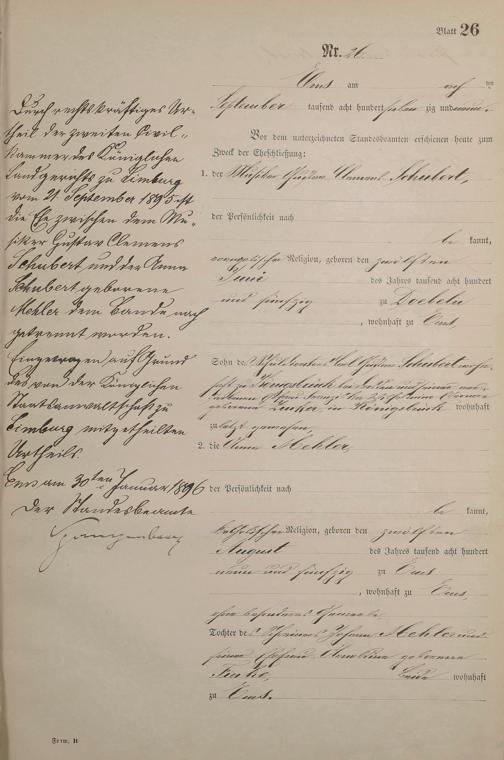 Blatt 26
Nr. 26
Ems am
September tausend acht hundert zig und
Vor dem unterzeichneten Standesbeamten erschienen heute zum
Zweck der Eheschließung:
1. der Musiker Gustav Clemens Schubert,
der Persönlichkeit nach
be kannt,
evangelischer Religion, geboren den zwölften
Juni des Jahres tausend acht hundert
und fünfzig zu Doebeln
, wohnhaft zu Ems,
Sohn des Schubert
zu Königsbrück
geborene in Königsbrück wohnhaft
zuletzt gewesen,
2. die Anna Mehler,
der Persönlichkeit nach
be kannt,
katholischer Religion, geboren den zwölften
August des Jahres tausend acht hundert
neun und fünfzig zu Ems
, wohnhaft zu Ems,
ohne besonderes Gewerbe
Tochter des Johann Mehler und
seiner Ehefrau geborenen
beide wohnhaft
zu Ems.
Durch rechtskräftiges Ur-
theil der zweiten Civil-
kammer des Königlichen
Landgerichts zu Limburg
vom 21. September 1895 ist
die Ehe zwischen dem Mu-
siker Gustav Clemens
Schubert und der Anna
Schubert geborene
Mehler dem Bande nach
getrennt worden.
Eingetragen auf Grund
des von der Königlichen
Staatsanwaltschaft zu
Limburg mitgetheilten
Urtheils.
Ems am 30ten Januar 1896
Der Standesbeamte
Spangenberg
Form. B